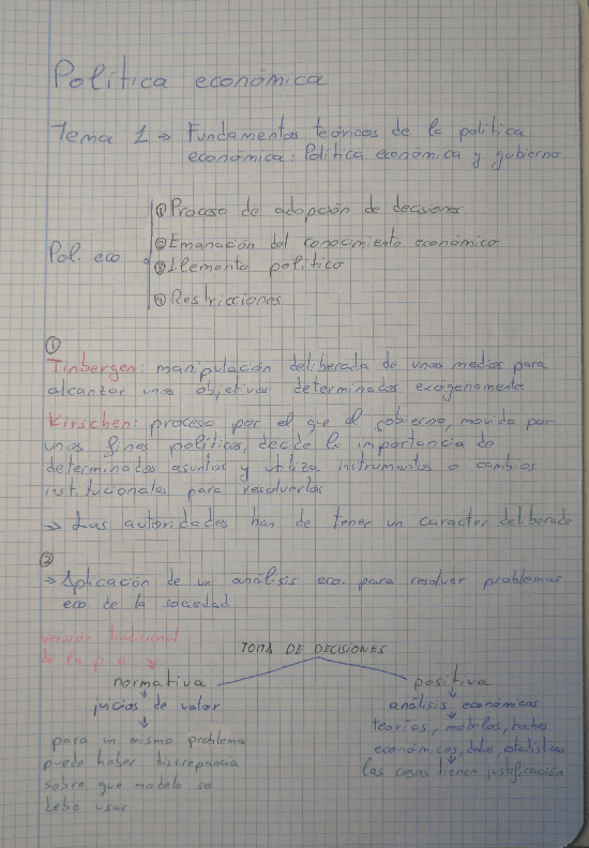 Política económica
Tema 1 → Fundamentos teóricos de la política
económica: Política económica y gobierno
① Proceso de adopción de decisiones
② Emanación del conocimiento económico
Pol. eco
③ Elemento político
④ Restricciones
①
Tinbergen: manipulación deliberada de unos medios para
alcanzar unos objetivos determinados exogenamente
Kirschen: proceso por el que el gobierno, movido por
unos fines políticos, decide la importancia de
determinados asuntos y utiliza instrumentos o cambios
institucionales para resolverlos
→ Las autoridades han de tener un caracter deliberado
②
→ Aplicación de un análisis eco. para resolver problemas
eco de la sociedad
versión tradicional
de la p e
TOMA DE DECISIONES
normativa
positiva
juicios de valor
análisis económicos
teorías, modelos, hechos
para un mismo problema
económicos, datos, estadísticas
puede haber discrepancia
las cosas tienen justificación
sobre que modelo se
debe usar